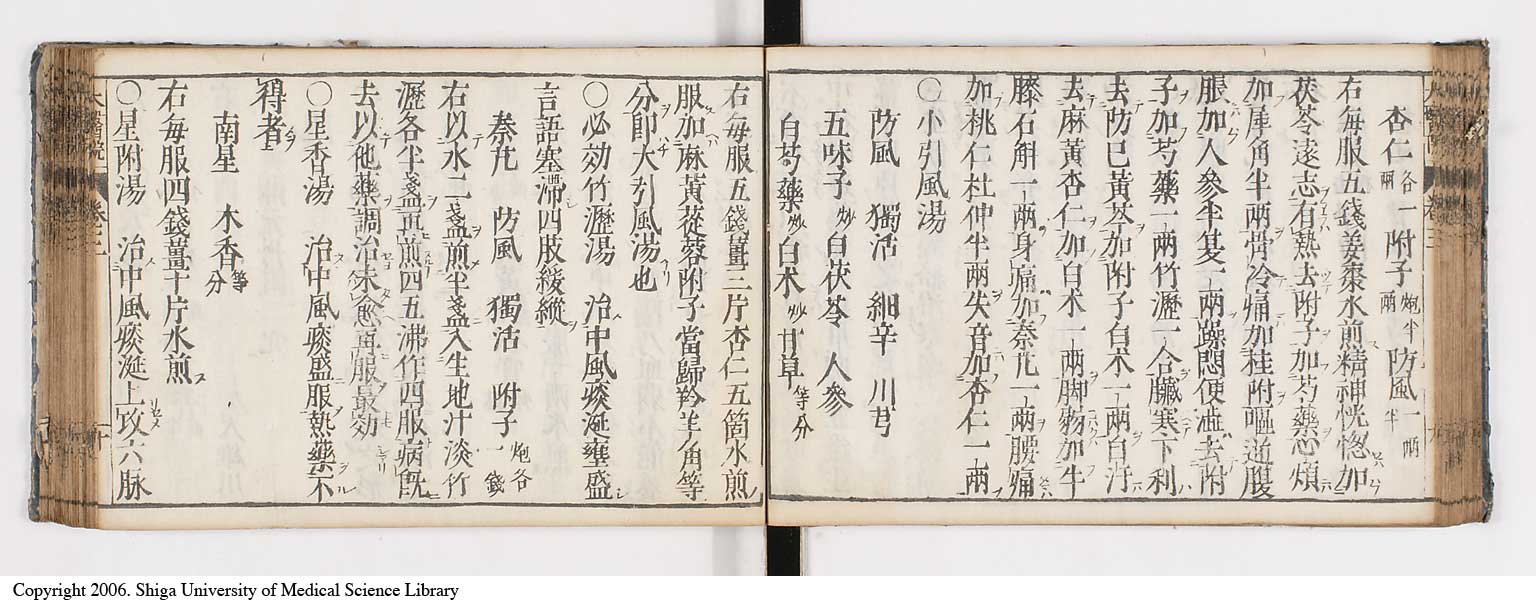 杏仁各一兩 附子炮半兩 防風一兩半
右毎服五錢姜棗水煎精神恍惚加
茯苓遠志有熱去附子加芍藥心煩
加犀角半兩骨冷痛加桂附嘔逆腹
脹加人參半夏一兩躁悶便澁去附
子加芍藥一兩竹瀝一合臓寒下利
去防已黃芩加附子白术一兩自汗
去麻黃杏仁加白术一兩脚弱加牛
膝石斛一兩身痛加秦艽一兩腰痛
加桃仁杜仲半兩失音加杏仁一兩
○小引風湯
防風 獨活 細辛 川芎
五味子炒白茯苓 人參
白芍藥炒白术炒甘草等分
右毎服五錢薑三片杏仁五箇水煎
服加麻黃蓯蓉附子當歸羚羊角等
分即大引風湯也
○必効竹瀝湯 治中風痰涎壅盛
言語蹇滯四肢緩縱
秦艽 防風 獨活 附子炮各一錢
右以水二盞煎半盞入生地汁淡竹
瀝各半盞再煎四五沸作四服病既
去以他藥調治未愈再服最効
○星香湯 治中風痰盛服熱藥不
得者
南星 木香等分
右毎服四錢薑十片水煎
○星附湯 治中風痰涎上攻六脉
Copyright 2006. Shiga University of Medical Science Library